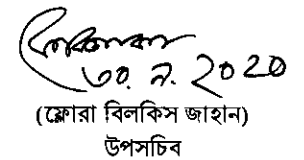 ৩০.৯.২০২০
(ফ্লোরা বিলকিস জাহান)
উপসচিব